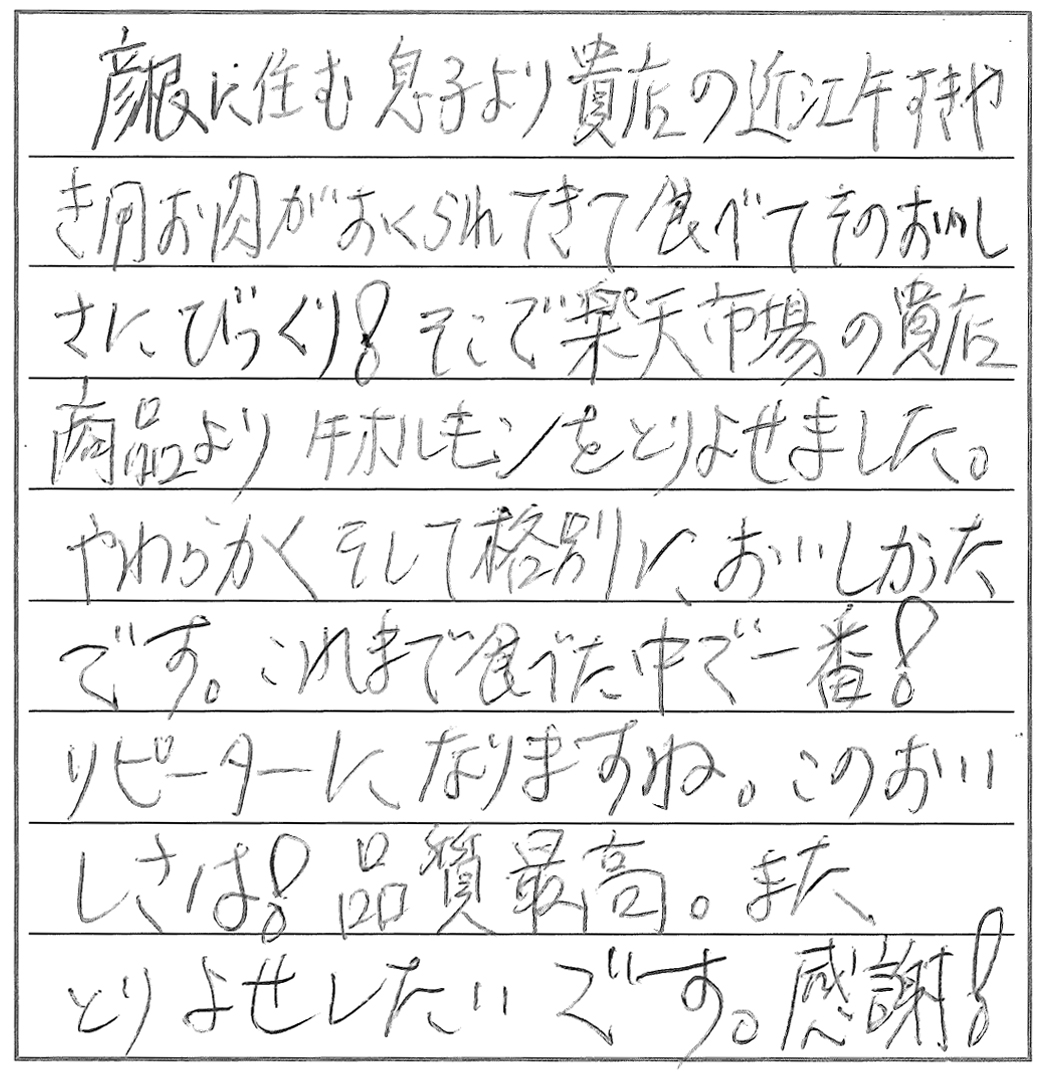 彦根に住む息子より貴店の近江牛すきや
き用お肉がおくられてきて食べてそのおいし
さにびっくり!そこで楽天市場の貴店
商品より牛ホルモンをとりよせました。
やわらかくそして格別に、おいしかった
です。これまで食べた中で一番!
リピーターになりますね。このおいい
しさは!品質最高。また、
とりよせしたいです。感謝!